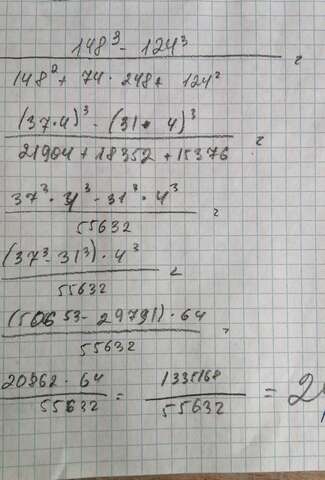 148³ - 124³
148² + 74 · 248 + 124²
(37·4)³ - (31·4)³
21904 + 18352 + 15376
37³ · 4³ - 31³ · 4³
55632
(37³ - 31³) · 4³
55632
(50653 - 29791) · 64
55632
20862 · 64 = 1335168 = 2
55632 55632